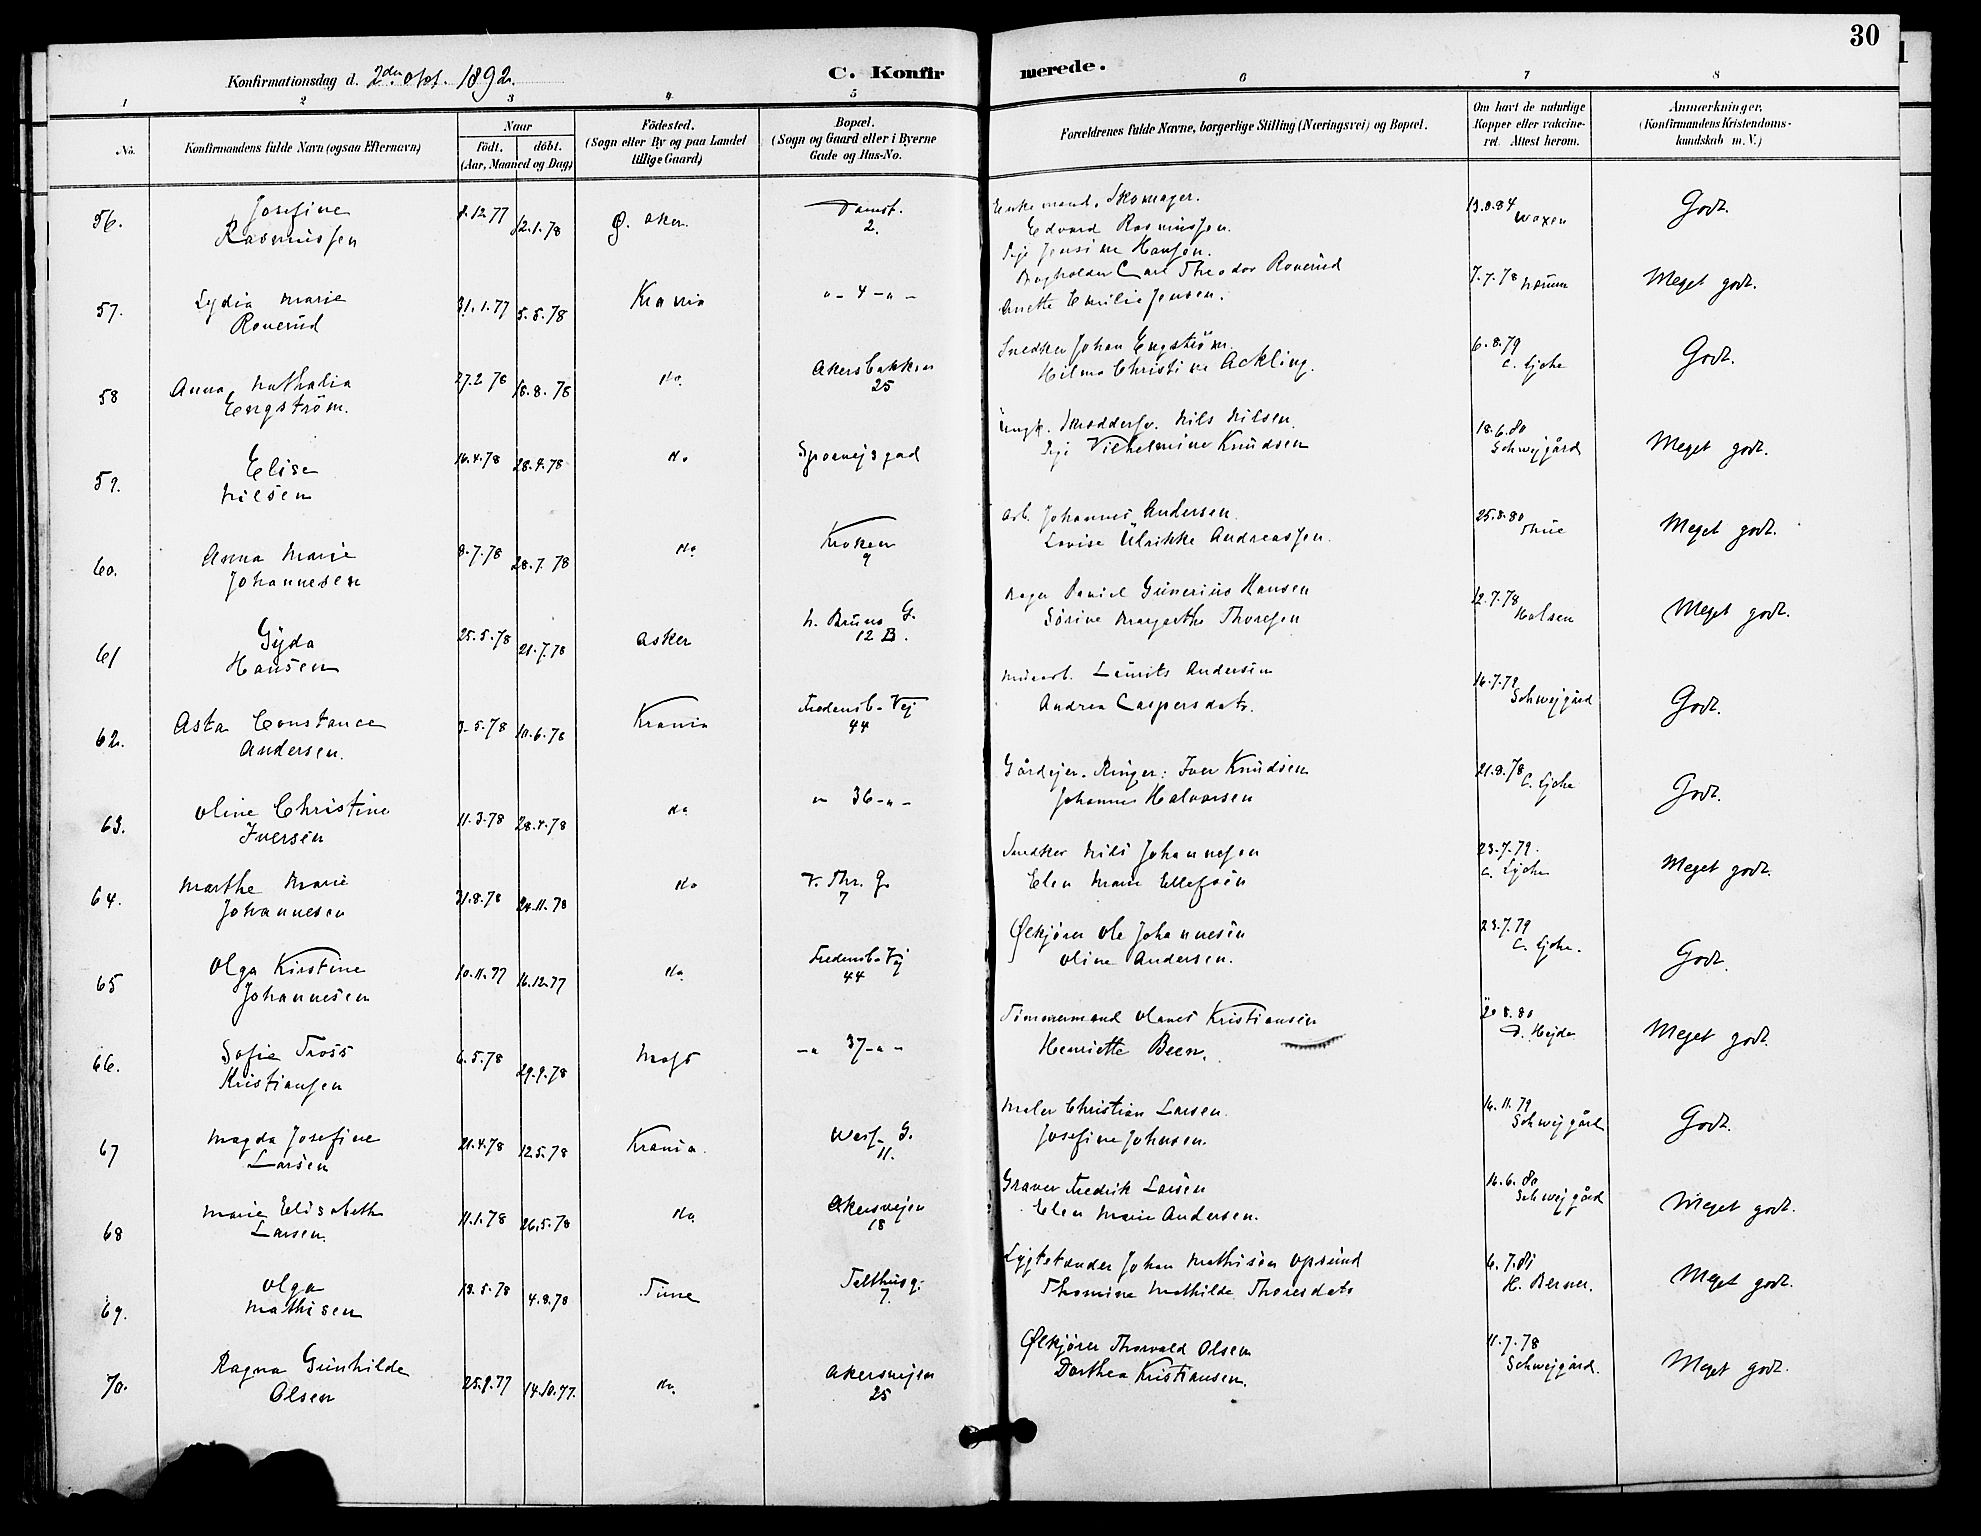 30
Konfirmationsdag d. 2den Okt. 1892.
C. Konfirmerede.
1 2 3 4 5 6 7 8
No.
Konfirmandens fulde Navn (ogsaa Efternavn)
Naar
født. døbt.
(Aar, Maaned og Dag)
Födested.
(Sogn eller By og paa Landet
tillige Gaard)
Bopæl.
(Sogn og Gaard eller i Byerne
Gade og Hus-No.
Forældrenes fulde Navne, borgerlige Stilling (Næringsvei) og Bopæl.
Om havt de naturlige
Kopper eller vakcine-
ret. Attest herom.
Anmærkninger.
(Konfirmandens Kristendoms-
kundskab m. V.)
56. Josefine 8.12.77 12.1.78 Ø. Aker. Damst. Enkemand, Skomager. 13.8.84 Godt.
Rasmussen 2. Edvard Rasmussen. Waxen
Pige Jensine Hansen.
57. Lydia Marie 31.1.77 5.5.78 Krania " - 4 - " - Bogholder Carl Theodor Roverud 7.7.78 Meget godt.
Roverud Anette Emilie Jensen.
58 Anna Nathalia 27.2.78 18.8.78 do. Akersbakken Snedker Johan Engström. 6.8.79 Godt.
Engström. 25 Hilma Christine Ackling. C. Ljche
59. Elise 16.4.78 28.4.78 do Sporvejsgad Ungk. Skrædersv. Nils Nilsen. 18.6.80 Meget godt.
Nilsen Pige Vilhelmine Knudsen Schwejgård
60. Anna Marie 8.7.78 28.7.78 do Kroken Arb. Johannes Andersen. 25.8.80 Meget godt.
Johannesen 9 Lovise Ulrikke Andreassen. Thue
61 Gyda 25.5.78 21.7.78 Asker N. Bruns G. Bager Daniel Gunerius Hansen 12.7.78 Meget godt.
Hansen 12 B. Sørine Margrethe Thoresen Holsen
62. Asta Constance 3.5.78 10.6.78 Krania Fredensb. Vej Murarb. Laurits Andersen 16.7.79 Godt.
Andersen. 44 Andrea Caspersdatr. Schwejgård
63. Oline Christine 11.3.78 28.4.78 do " 36 - " - Gårdejer. Ringer: Iver Knudsen 21.9.78 Godt.
Iversen Johanne Halvorsen C. Ljche
64. Marthe Marie 31.8.78 24.11.78 do V. Thr. G. Snedker Nils Johannesen 23.7.79. Meget godt.
Johannesen 7 Elen Marie Ellefsen C. Ljche
65 Olga Kirstine 10.11.77 16.12.77 do Fredensb. Vej Ølkjører Ole Johannesen 23.7.79 Godt.
Johannesen 44 Oline Andersen. C. Ljche.
66. Sofie Tross 6.5.78 29.9.78 Moss - " 37 - " - Tømmermand Olaves Kristiansen 20.8.80 Meget godt.
Kristiansen Henriette Been. D. Hejde
67 Magda Josefine 21.4.78 12.5.78 Krania. Wess. G. Maler Christian Larsen. 14.11.79 Godt.
Larsen 11. Josefine Johnsen. Schwejgård
68 Marie Elisabeth 11.1.78 26.5.78 do Akersvejen Graver Fredrik Larsen 16.6.80 Meget godt.
Larsen. 18 Elen Marie Andersen. Schwejgård
69. Olga 13.5.78 4.8.78 Tune Telthusg. Lygtetænder Johan Mathisen Opsund 6.7.81 Meget godt.
Mathisen 7. Thomine Mathilde Thoresdatr H. Berner.
70. Ragna Gunhilde 25.9.77 14.10.77. do. Akersvejen Ølkjører Thorvald Olsen 11.7.78 Meget godt.
Olsen 25 Dorthea Kristiansen. Schwejgård.